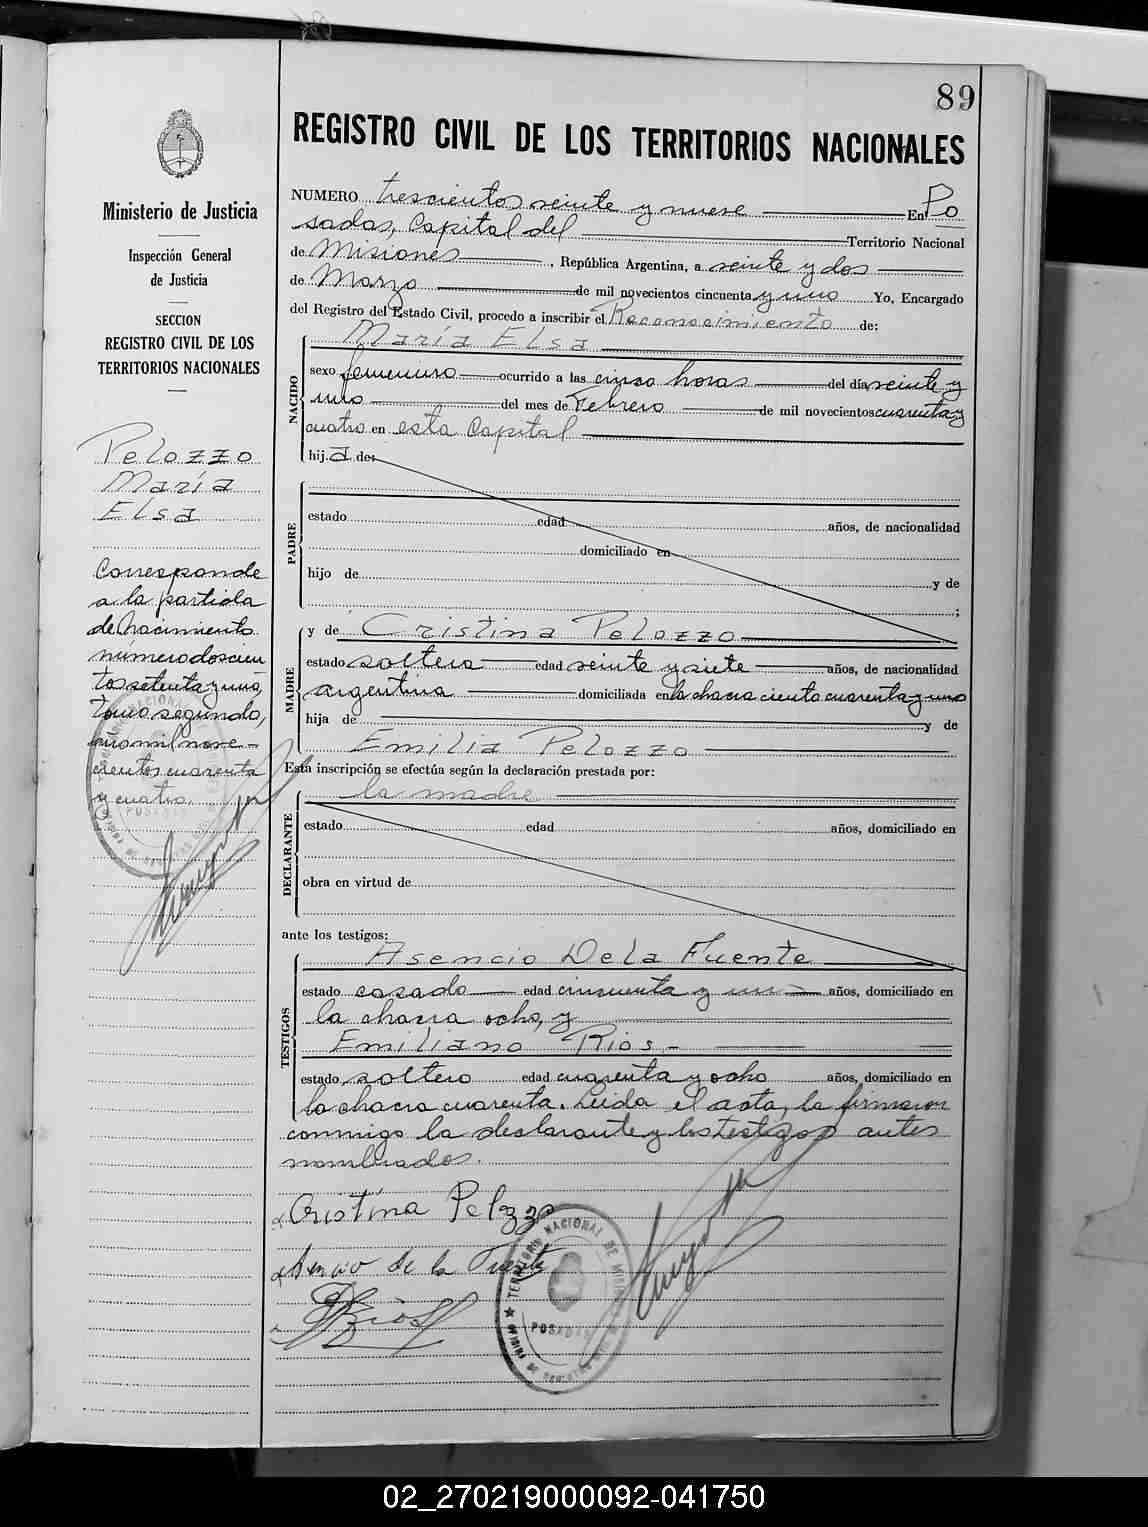 89
REGISTRO CIVIL DE LOS TERRITORIOS NACIONALES
Ministerio de Justicia
Inspección General
de Justicia
SECCION
REGISTRO CIVIL DE LOS
TERRITORIOS NACIONALES
Pelozzo
María
Elsa
Corresponde
a la partida
de nacimiento
numero doscien
tos setenta y uno,
tomo segundo,
año mil nove-
cientos cuarenta
y cuatro.
NUMERO trescientos veinte y nueve En Po
sadas, Capital del Territorio Nacional
de Misiones, República Argentina, a veinte y dos
de Marzo de mil novecientos cincuenta y uno Yo, Encargado
del Registro del Estado Civil, procedo a inscribir el Reconocimiento de:
María Elsa
NACIDO
sexo femenino ocurrido a las cinco horas del día veinte y
uno del mes de Febrero de mil novecientos cuarenta y
cuatro en esta Capital
hija de:
PADRE
estado edad años, de nacionalidad
domiciliado en
hijo de y de
;
y de Cristina Pelozzo
MADRE
estado soltera edad veinte y siete años, de nacionalidad
argentina domiciliada en la chacra ciento cuarenta y uno
hija de y de
Emilia Pelozzo
Esta inscripción se efectúa según la declaración prestada por:
la madre
DECLARANTE
estado edad años, domiciliado en
obra en virtud de
ante los testigos:
Asencio De la Fuente
TESTIGOS
estado casado edad cincuenta y uno años, domiciliado en
la chacra ocho, y
Emiliano Rios
estado soltero edad cuarenta y ocho años, domiciliado en
la chacra cuarenta. Leida el acta, la firmaron
conmigo la declarante y los testigos antes
nombrados.
Cristina Pelozzo
Asencio de la Fuente
E Rios
TERRITORIO NACIONAL DE MISIONES
POSADAS
02_270219000092-041750